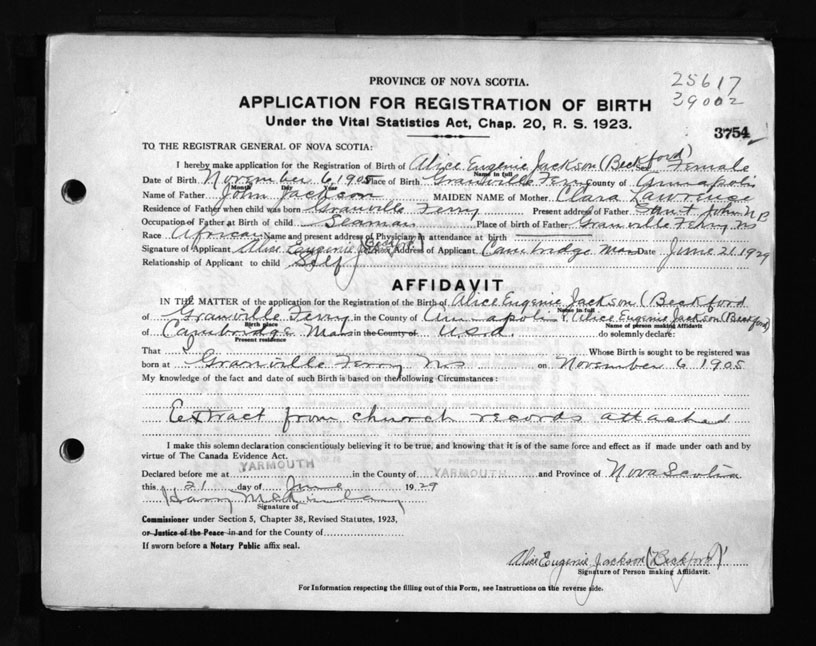 PROVINCE OF NOVA SCOTIA.
25617
39002
APPLICATION FOR REGISTRATION OF BIRTH
Under the Vital Statistics Act, Chap. 20, R. S. 1923.
3754
TO THE REGISTRAR GENERAL OF NOVA SCOTIA:
I hereby make application for the Registration of Birth of Alice Eugenie Jackson (Beckford) Sex Female
Name in full
Date of Birth November 6 1905 Place of Birth Granville Ferry County of Annapolis
Month Day Year
Name of Father John Jackson MAIDEN NAME of Mother Clara Lawrence
Residence of Father when child was born Granville Ferry Present address of Father Saint John N B
Occupation of Father at Birth of child Seaman Place of birth of Father Granville Ferry NS
Race African Name and present address of Physician in attendance at birth
Signature of Applicant Alice Eugenie Address of Applicant Cambridge Mass Date June 21 1929
Relationship of Applicant to child Self
AFFIDAVIT
IN THE MATTER of the application for the Registration of the Birth of Alice Eugenie Jackson (Beckford
Name in full
of Granville Ferry in the County of Annapolis I, Alice Eugenie Jackson (Beckford)
Birth place Name of person making Affidavit
of Cambridge Mass in the County of U.S.A. do solemnly declare:
Present residence
That I Whose Birth is sought to be registered was
born at Granville Ferry NS on November 6 1905
My knowledge of the fact and date of such Birth is based on the following Circumstances:
Extract from church records attached
I make this solemn declaration conscientiously believing it to be true, and knowing that it is of the same force and effect as if made under oath and by
virtue of The Canada Evidence Act.
Declared before me at YARMOUTH in the County of YARMOUTH and Province of Nova Scotia
this 21 day of June 1929
Harry
Signature of
Commissioner under Section 5, Chapter 38, Revised Statutes, 1923,
or Justice of the Peace in and for the County of
If sworn before a Notary Public affix seal.
Alice Eugenie Jackson (Beckford)
Signature of Person making Affidavit.
For Information respecting the filling out of this Form, see Instructions on the reverse side.